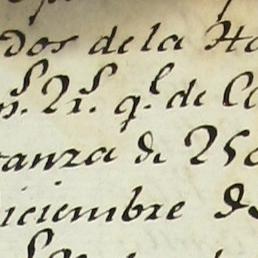 dos de la Ha
n.s 21.s q.e de Ca
tanza de 250
iciembre de